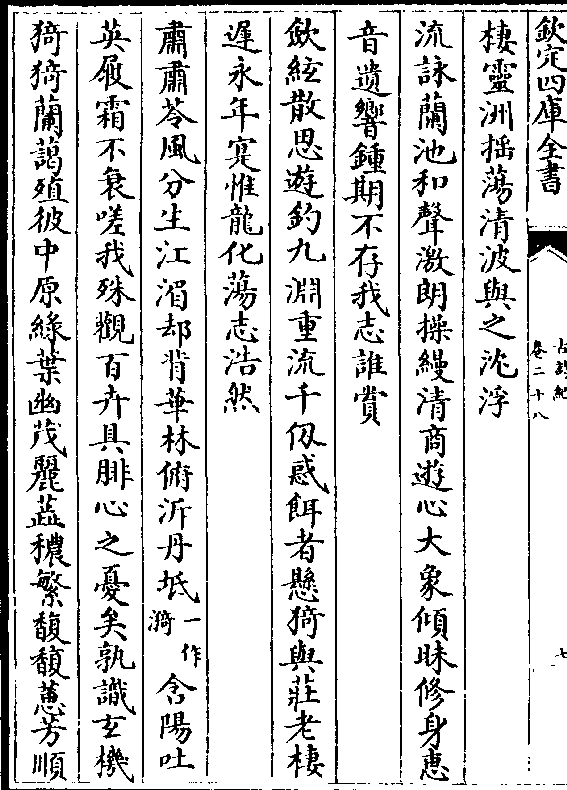 欽定四庫全書
古詩紀
卷二十八
七
棲靈洲揺蕩清波與之沈浮
流詠蘭池和聲激朗操縵清商遊心大象傾昧修身惠
音遺響鍾期不存我志誰賞
歛絃散思遊釣九淵重流千仭惑餌者懸猗與莊老棲
遲永年寔惟龍化蕩志浩然
肅肅苓風分生江湄却背華林俯泝丹坻一作漪含陽吐
英履霜不衰嗟我殊觀百卉具腓心之憂矣孰識玄機
猗猗蘭藹殖彼中原綠葉幽茂麗蘂穠繁馥馥蕙芳順